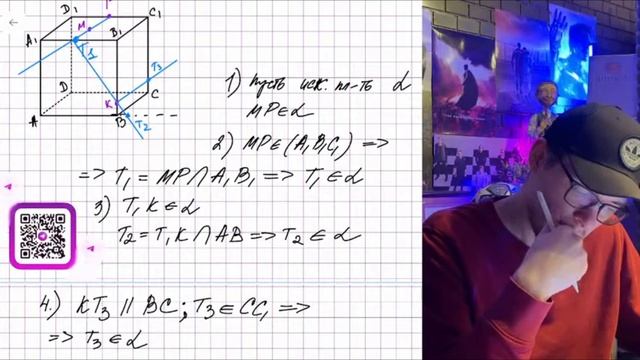 D₁
C₁
M
A₁
T₁
B₁
T₃
D
K
C
A
B
T₂
1) Пусть иск. пл-ть α
MP∈α
2) MP∈(A₁B₁C₁) =>
=> T₁ = MP⋂A₁B₁ => T₁∈α
3) T₁K∈α
T₂ = T₁K⋂AB => T₂∈α
4.) KT₃ || BC; T₃∈CC₁ =>
=> T₃∈α